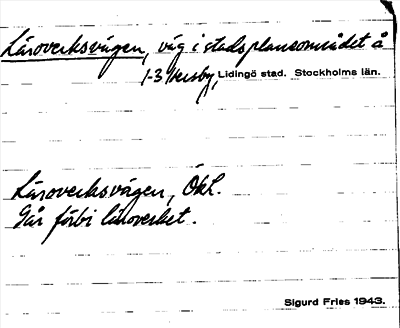 Läroverksvägen, väg i stadsplansområdet å
1-3 Hersby, Lidingö stad. Stockholms län.
Läroverksvägen, ÖkL.
Går förbi läroverket.
Sigurd Fries 1943.